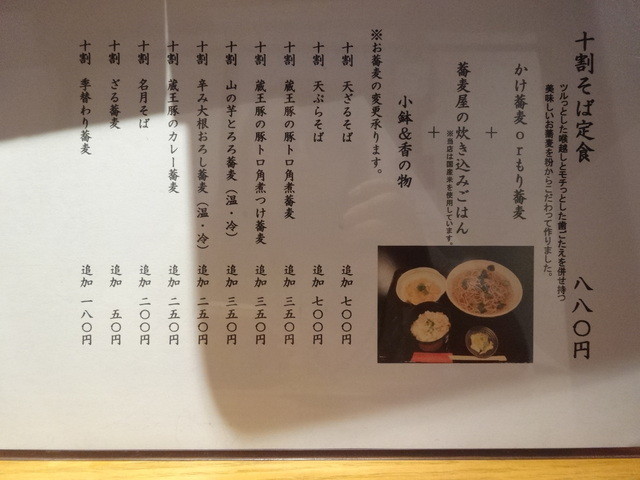 十割そば定食 八八〇円
ツルっとした喉越しとモチっとした歯ごたえを併せ持つ
美味しいお蕎麦を粉からこだわって作りました。
かけ蕎麦orもり蕎麦
+
蕎麦屋の炊き込みごはん
※当店は国産米を使用しています。
+
小鉢&香の物
※お蕎麦の変更承ります。
十割 天ざるそば 追加 七〇〇円
十割 天ぷらそば 追加 七〇〇円
十割 蔵王豚の豚トロ角煮蕎麦 追加 三五〇円
十割 蔵王豚の豚トロ角煮つけ蕎麦 追加 三五〇円
十割 山の芋とろろ蕎麦(温・冷) 追加 三五〇円
十割 辛み大根おろし蕎麦(温・冷) 追加 二五〇円
十割 蔵王豚のカレー蕎麦 追加 二五〇円
十割 名月そば 追加 二〇〇円
十割 ざる蕎麦 追加 五〇円
十割 季替わり蕎麦 追加 一八〇円